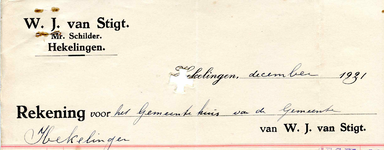 W. J. van Stigt.
Mr. Schilder.
Hekelingen.
Hekelingen, december 1921
Rekening voor het Gemeente huis van de Gemeente
Hekelingen
van W. J. van Stigt.